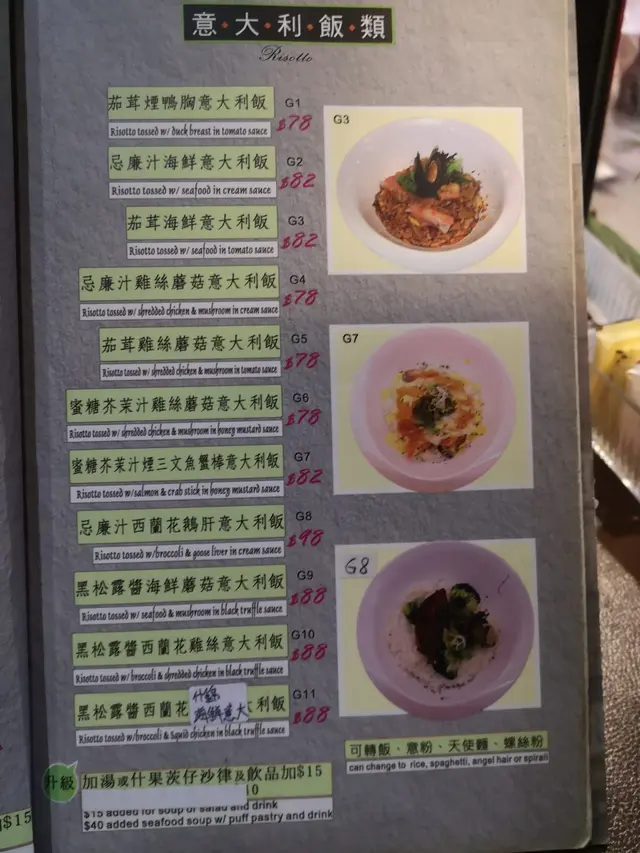 意·大·利·飯·類
Risotto
茄茸煙鴨胸意大利飯 G1
Risotto tossed w/ duck breast in tomato sauce $78
忌廉汁海鮮意大利飯 G2
Risotto tossed w/ seafood in cream sauce $82
茄茸海鮮意大利飯 G3
Risotto tossed w/ seafood in tomato sauce $82
忌廉汁雞絲蘑菇意大利飯 G4
Risotto tossed w/ shredded chicken & mushroom in cream sauce $78
茄茸雞絲蘑菇意大利飯 G5
Risotto tossed w/ shredded chicken & mushroom in tomato sauce $78
蜜糖芥茉汁雞絲蘑菇意大利飯 G6
Risotto tossed w/ shredded chicken & mushroom in honey mustard sauce $78
蜜糖芥茉汁煙三文魚蟹棒意大利飯 G7
Risotto tossed w/salmon & crab stick in honey mustard sauce $82
忌廉汁西蘭花鵝肝意大利飯 G8
Risotto tossed w/broccoli & goose liver in cream sauce $98
黑松露醬海鮮蘑菇意大利飯 G9
Risotto tossed w/ seafood & mushroom in black truffle sauce $88
黑松露醬西蘭花雞絲意大利飯 G10
Risotto tossed w/ broccoli & shredded chicken in black truffle sauce $88
黑松露醬西蘭花 什錦 海鮮意大利飯 G11
Risotto tossed w/broccoli & squid chicken in black truffle sauce $88
升級 加湯或什果茨仔沙律及飲品加$15
$15 added for soup or salad and drink
$40 added seafood soup w/ puff pastry and drink
G3
G7
G8
可轉飯、意粉、天使麵、螺絲粉
can change to rice, spaghetti, angel hair or spiran
$15